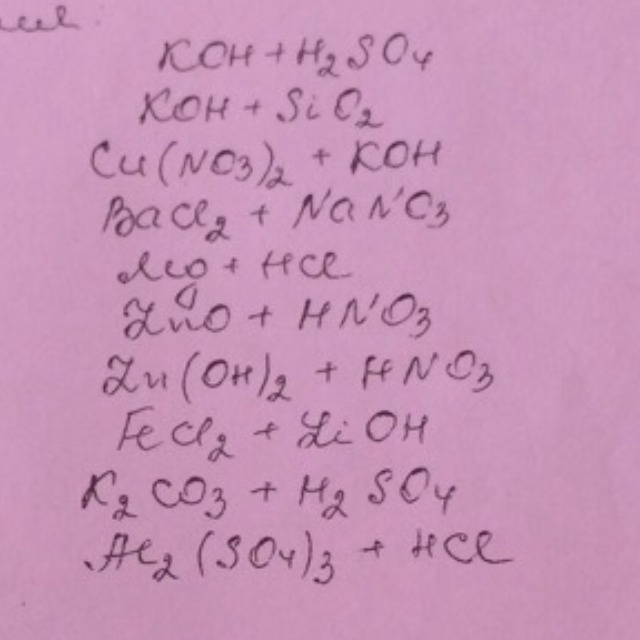 KOH + H₂SO₄
KOH + SiO₂
Cu(NO₃)₂ + KOH
BaCl₂ + NaNO₃
Mg + HCl
ZnO + HNO₃
Zn(OH)₂ + HNO₃
FeCl₂ + LiOH
K₂CO₃ + H₂SO₄
Al₂(SO₄)₃ + HCl